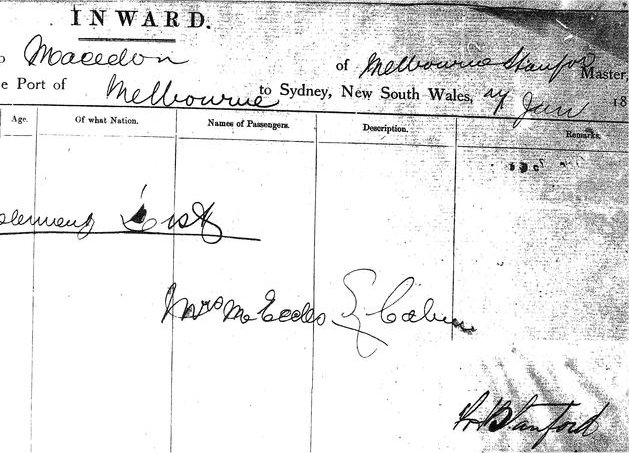 INWARD.
Macedon of Melbourne Stanford Master,
e Port of Melbourne to Sydney, New South Wales, Jan 18
Age. Of what Nation. Names of Passengers. Description. Remarks.
List
Mrs McEccles Cabin
Stanford